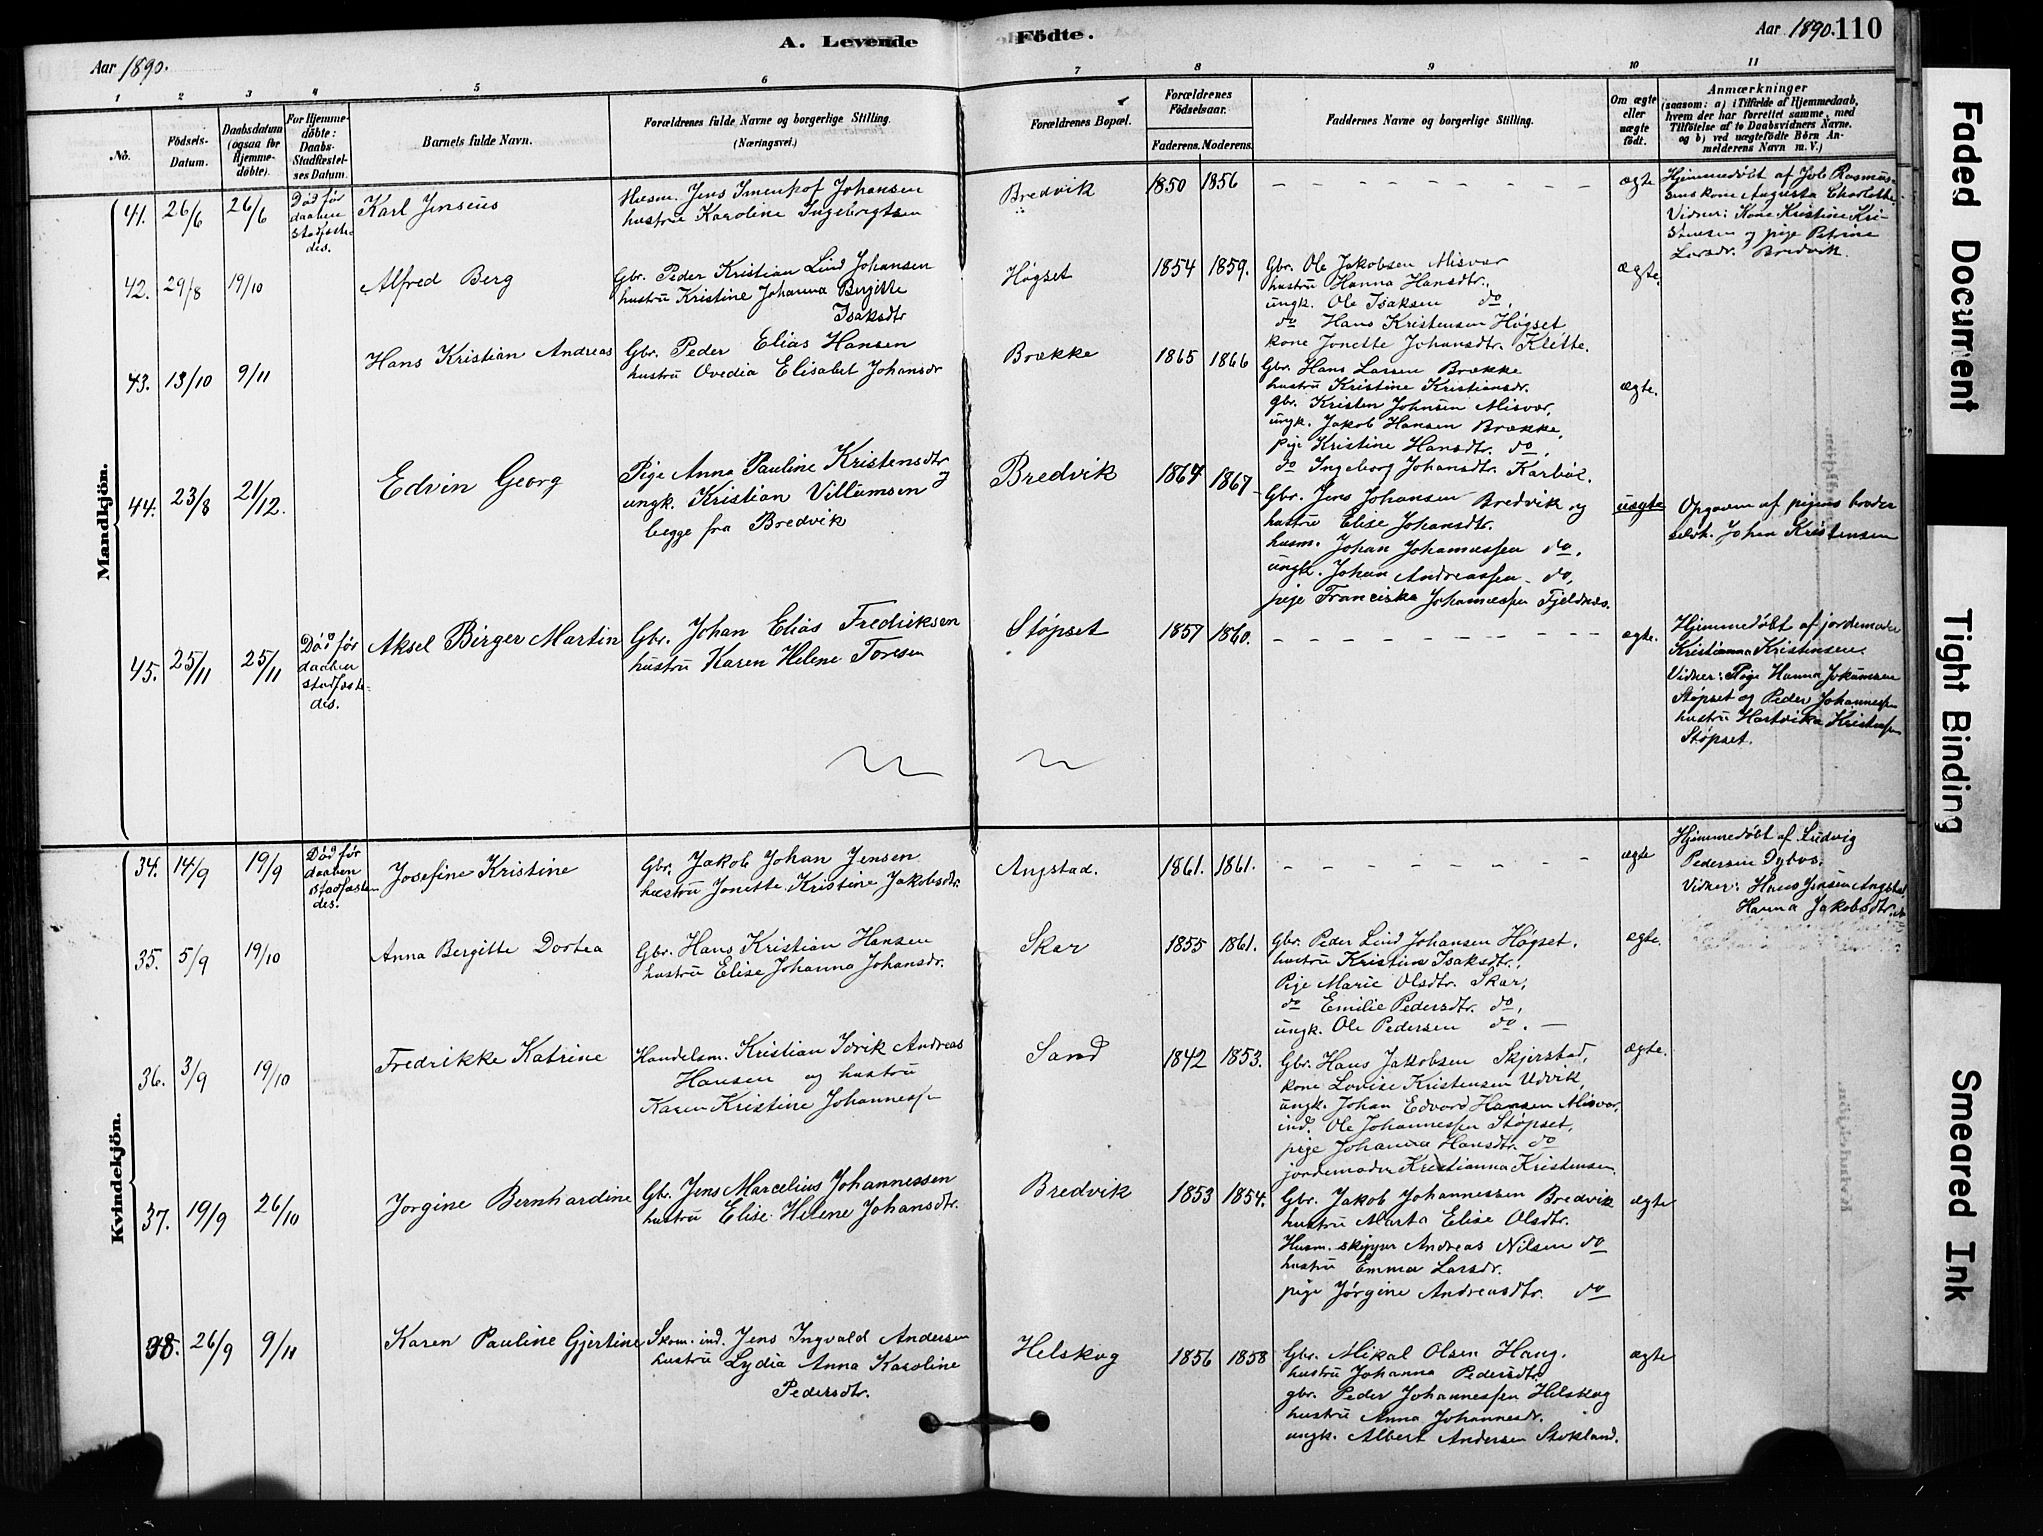 Aar 1890.
A. Levende Födte.
Aar 1890. 110
1 2 3 4 5 6 7 8 9 10 11
No.
Födsels-Datum.
Daabsdatum (ogsaa for Hjemme-döbte).
For Hjemme-döbte: Daabs-Stadfæstel-ses Datum.
Barnets fulde Navn.
Forældrenes fulde Navne og borgerlige Stilling.
(Næringsvei.)
Forældrenes Bopæl.
Forældrenes Födselsaar.
Faderens. Moderens.
Faddernes Navne og borgerlige Stilling.
Om ægte eller uægte født.
Anmærkninger
(saasom: a) i Tilfælde af Hjemmedaab,
hvem der har forrettet samme, med
Tilföielse af to Daabsvidners Navne.
og b) ved uægtefödte Börn An-
melderens Navn m. V.)
Mandkjön.
41. 26/6 26/6
Död før
daaben
stadfæste-
des.
Karl Jenseus
Husm. Jens Johansen
hustru Karoline Ingebrigtsen
Bredvik
1850 1856
ægte
Hjemmedøbt af Joh. Rasmus-
sens kone Augusta Charlotte.
Vidner: Kone Kristine Kri-
stensen og pige Petrine
Larsdr. Bredvik.
42. 29/8 19/10
Alfred Berg
Gbr. Peder Kristian Lind Johansen
hustru Kristine Johanna Bergitte
Isaksdtr
Høgset
1854 1859.
Gbr. Ole Jakobsen Misvær
hustru Hanna Hansdtr.,
ungk. Ole Isaksen do,
do Hans Kristensen Høgset
kone Jonette Johansdtr. Klette.
ægte.
43. 13/10 9/11
Hans Kristian Andreas
Gbr. Peder Elias Hansen
hustru Ovedia Elisabet Johansdr
Brække
1865 1866
Gbr. Hans Larsen Brække
hustru Kristine Kristiansdr.
gbr. Kristen Johnsen Misvær,
ungk. Jakob Hansen Brække,
pige Kristine Hansdtr. do,
do Ingeborg Johansdtr. Karbøl.
ægte.
44. 23/8 21/12.
Edvin Georg
Pige Anna Pauline Kristensdtr og
ungk. Kristian Villumsen
begge fra Bredvik
Bredvik
1864 1867
Gbr. Jens Johansen Bredvik og
hustru Elise Johansdtr.
husm. Johan Johannessen do,
ungk. Johan Andreassen do,
pige Franciska Johannessen Fjeldnæs.
uægte
Opgaven af pigens broder
selvk. Johan Kristensen
45. 25/11 25/11
Död før
daaben
stadfæste-
des.
Aksel Birger Martin
Gbr. Johan Elias Fredriksen
hustru Karen Helene Toresen
Støpset
1857 1860.
ægte.
Hjemmedøbt af jordemoder
Kristianna Kristensen.
Vidner: Pige Hanna Jokumsen
Støpset og Peder Johannessen
hustru Hartvika Kristensen
Støpset.
Kvindekjön.
34. 14/9 19/9
Död før
daaben
stadfæste-
des.
Josefine Kristine
Gbr. Jakob Johan Jensen
hustru Jonette Kristine Jakobsdtr.
Angstad.
1861. 1861.
ægte
Hjemmedøbt af Ludvig
Pedersen
Vidner: Hans Jensen Angstad
Hanna Jakobsdtr. do
35. 5/9 19/10
Anna Bergitte Dortea
Gbr. Hans Kristian Hansen
hustru Elise Johanna Johansdr.
Skar
1855 1861.
Gbr. Peder Lind Johansen Høgset.
hustru Kristine Isaksdtr.,
Pige Marie Olsdtr. Skar,
do Emilie Pedersdtr. do,
ungk. Ole Pedersen do.
ægte.
36. 3/9 19/10
Fredrikke Katrine
Handelsm. Kristian Andreas
Hansen og hustru
Karen Kristine Johannessen
Sand
1842 1853.
Gbr. Hans Jakobsen Skjerstad,
kone Lovise Kristensen Udvik,
ungk. Johan Edvard Hansen Misvær,
ind. Ole Johannessen Støpset,
pige Johanna Hansdtr. do
jordemoder Kristianna Kristensen.
ægte.
37. 19/9 26/10
Jorgine Bernhardine
Gbr. Jens Marcelius Johannessen
hustru Elise Helene Johansdtr.
Bredvik
1853 1854.
Gbr. Jakob Johannessen Bredvik
hustru Marta Elise Olsdtr.
Husm. skipper Andreas Nilsen do
hustru Emma Larsdr.
pige Jørgine Andreasdtr. do
ægte
38. 26/9 9/11
Karen Pauline Gjertine
Skom. ind. Jens Ingvald Andersen
hustru Lydia Anna Karoline
Pedersdtr.
Helskog
1856 1858
Gbr. Mikal Olsen Haug.
hustru Johanna Pedersdtr
gbr. Peder Johannessen Helskog
hustru Anna Johannesdr.
ungk. Albert Andersen Stokland.
ægte
Faded Document
Tight Binding
Smeared Ink